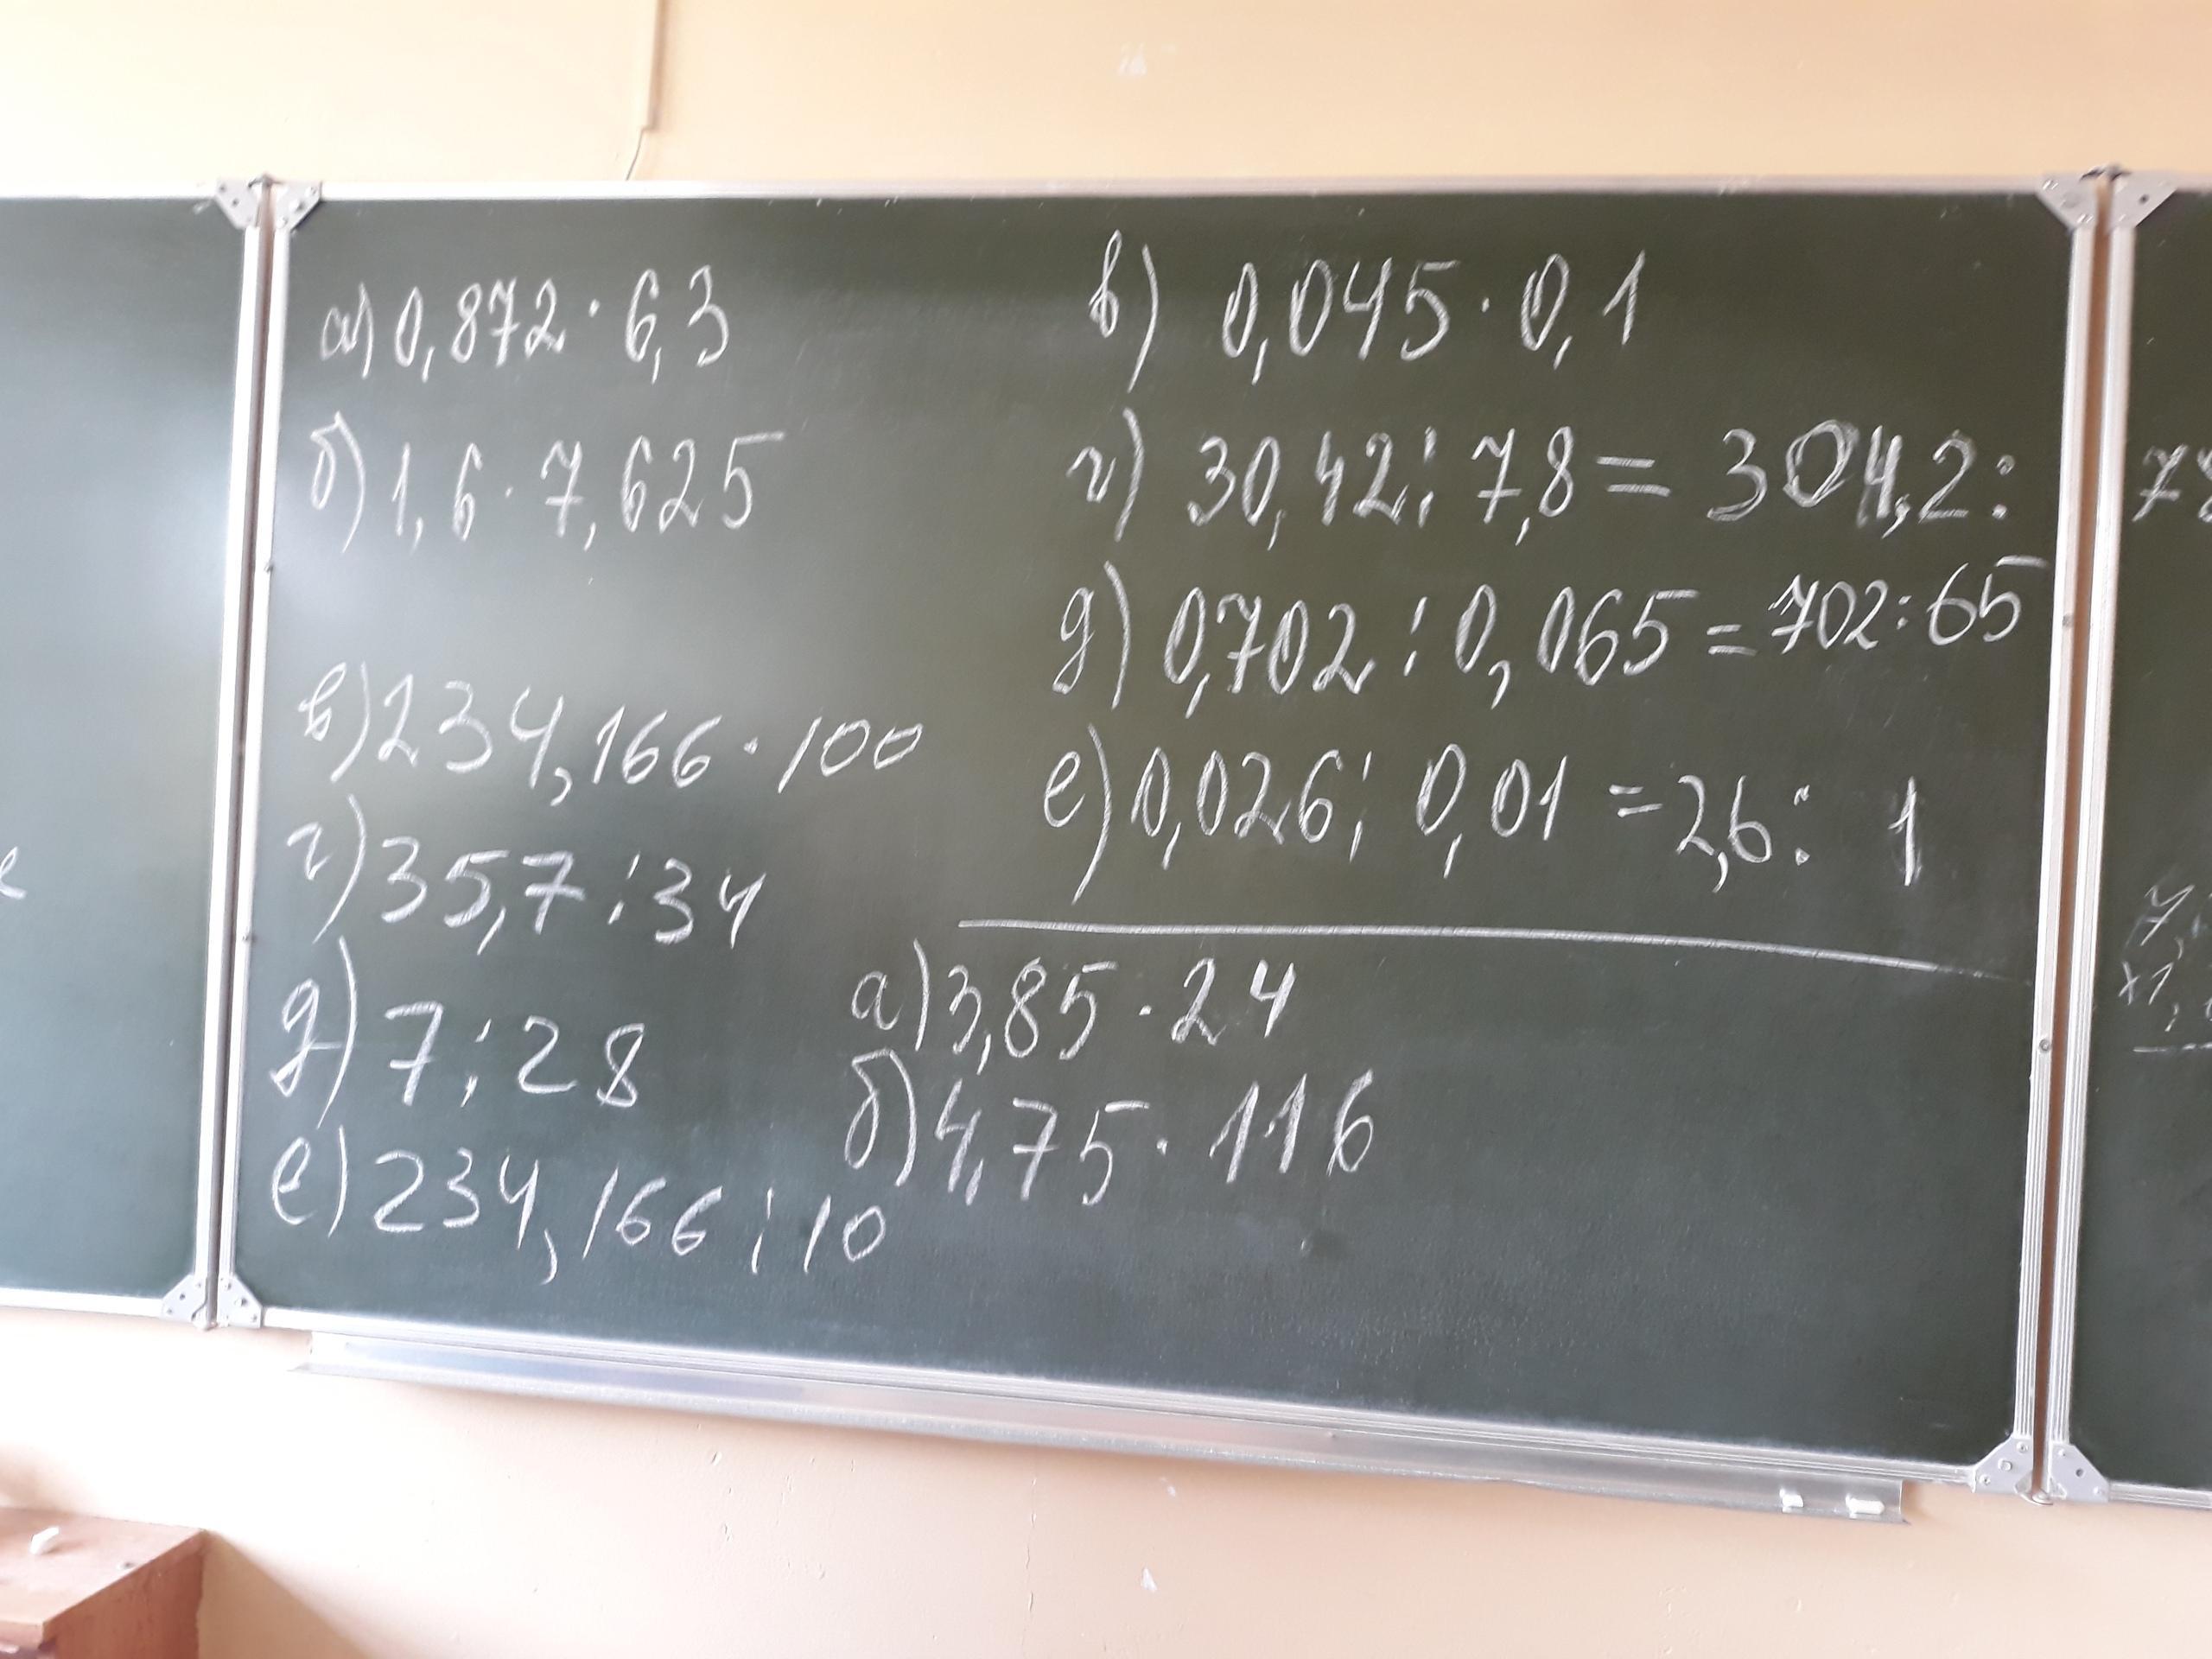 а) 0,872 · 6,3
б) 1,6 · 7,625
в) 0,045 · 0,1
г) 30,42 : 7,8 = 304,2 : 78
д) 0,702 : 0,065 = 702 : 65
е) 0,026 : 0,01 = 2,6 : 1
а) 3,85 · 24
б) 4,75 · 116
в) 234,166 · 100
г) 35,7 : 34
д) 7 : 28
е) 234,166 : 10